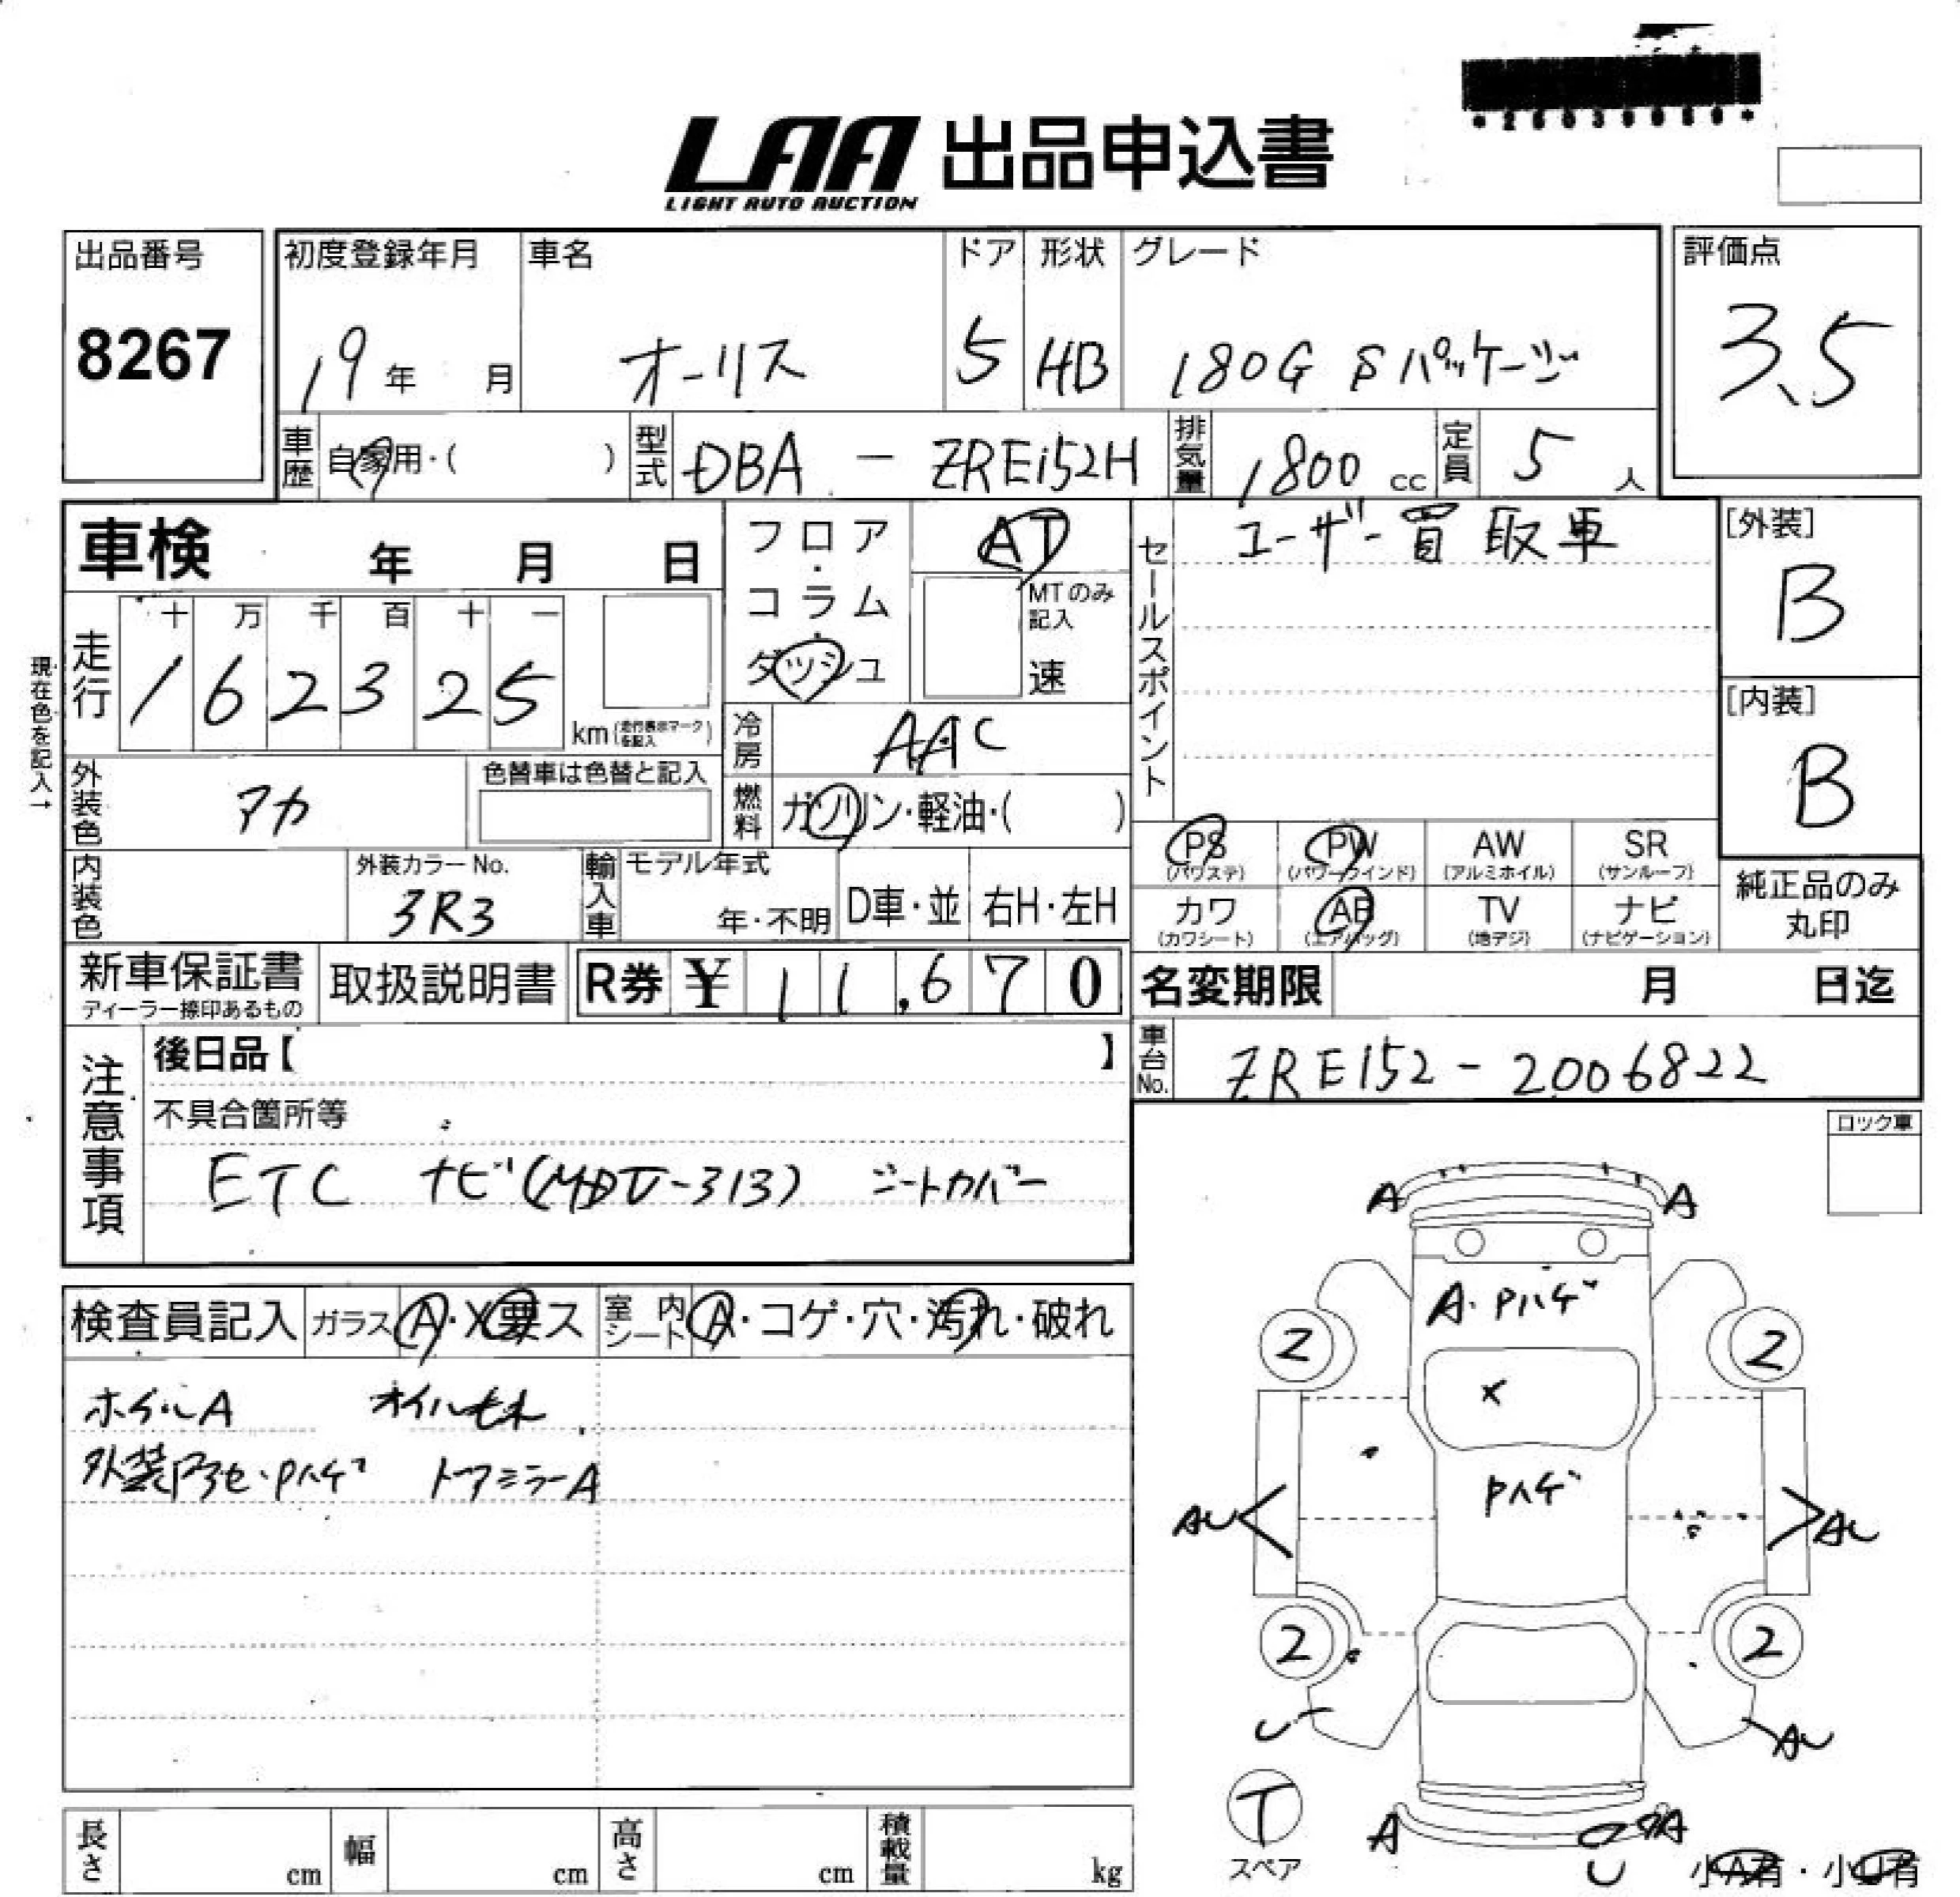 LAA 出品申込書
LIGHT AUTO AUCTION
出品番号
8267
初度登録年月
19年 月
車名
オーリス
ドア
5
形状
HB
グレード
180G Sパッケージ
評価点
3.5
車歴 自家用・( )
型式 DBA - ZRE152H
排気量 1800 cc
定員 5 人
車検 年 月 日
フロア・コラム・ダッシュ
AT
MTのみ記入
速
セールスポイント
ユーザー買取車
[外装]
B
[内装]
B
現在色を記入→
走行
十 万 千 百 十 一
1 6 2 3 2 5
km(走行表示マークを記入)
冷房 AAC
外装色 アカ
色替車は色替と記入
燃料 ガソリン・軽油・( )
内装色
外装カラーNo.
3R3
輸入車
モデル年式
年・不明
D車・並
右H・左H
PS (パワステ)
PW (パワーウインド)
AW (アルミホイル)
SR (サンルーフ)
カワ (カワシート)
AB (エアバッグ)
TV (地デジ)
ナビ (ナビゲーション)
純正品のみ丸印
新車保証書
ディーラー捺印あるもの
取扱説明書
R券 ¥ 11,670
名変期限 月 日迄
車台No. ZRE152-2006822
注意事項
後日品【 】
不具合箇所等
ETC ナビ( -313) シートカバー
ロック車
検査員記入
ガラス A・X要ス
室内シート A・コゲ・穴・汚れ・破れ
ホイルA オイルモレ
外装 ・Pハゲ ドアミラーA
A A
A・Pハゲ
2 2
X
Pハゲ
AU AU
2 2
U AU
T
スペア
A A
U
小A有・小U有
長さ cm
幅 cm
高さ cm
積載量 kg